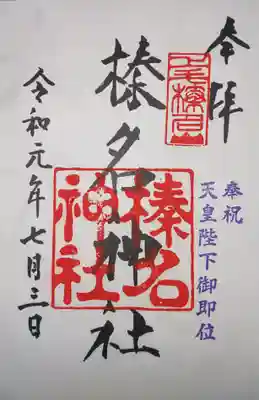 奉拝
奉祝
天皇陛下御即位
榛名神社
榛名神社
令和元年七月三日